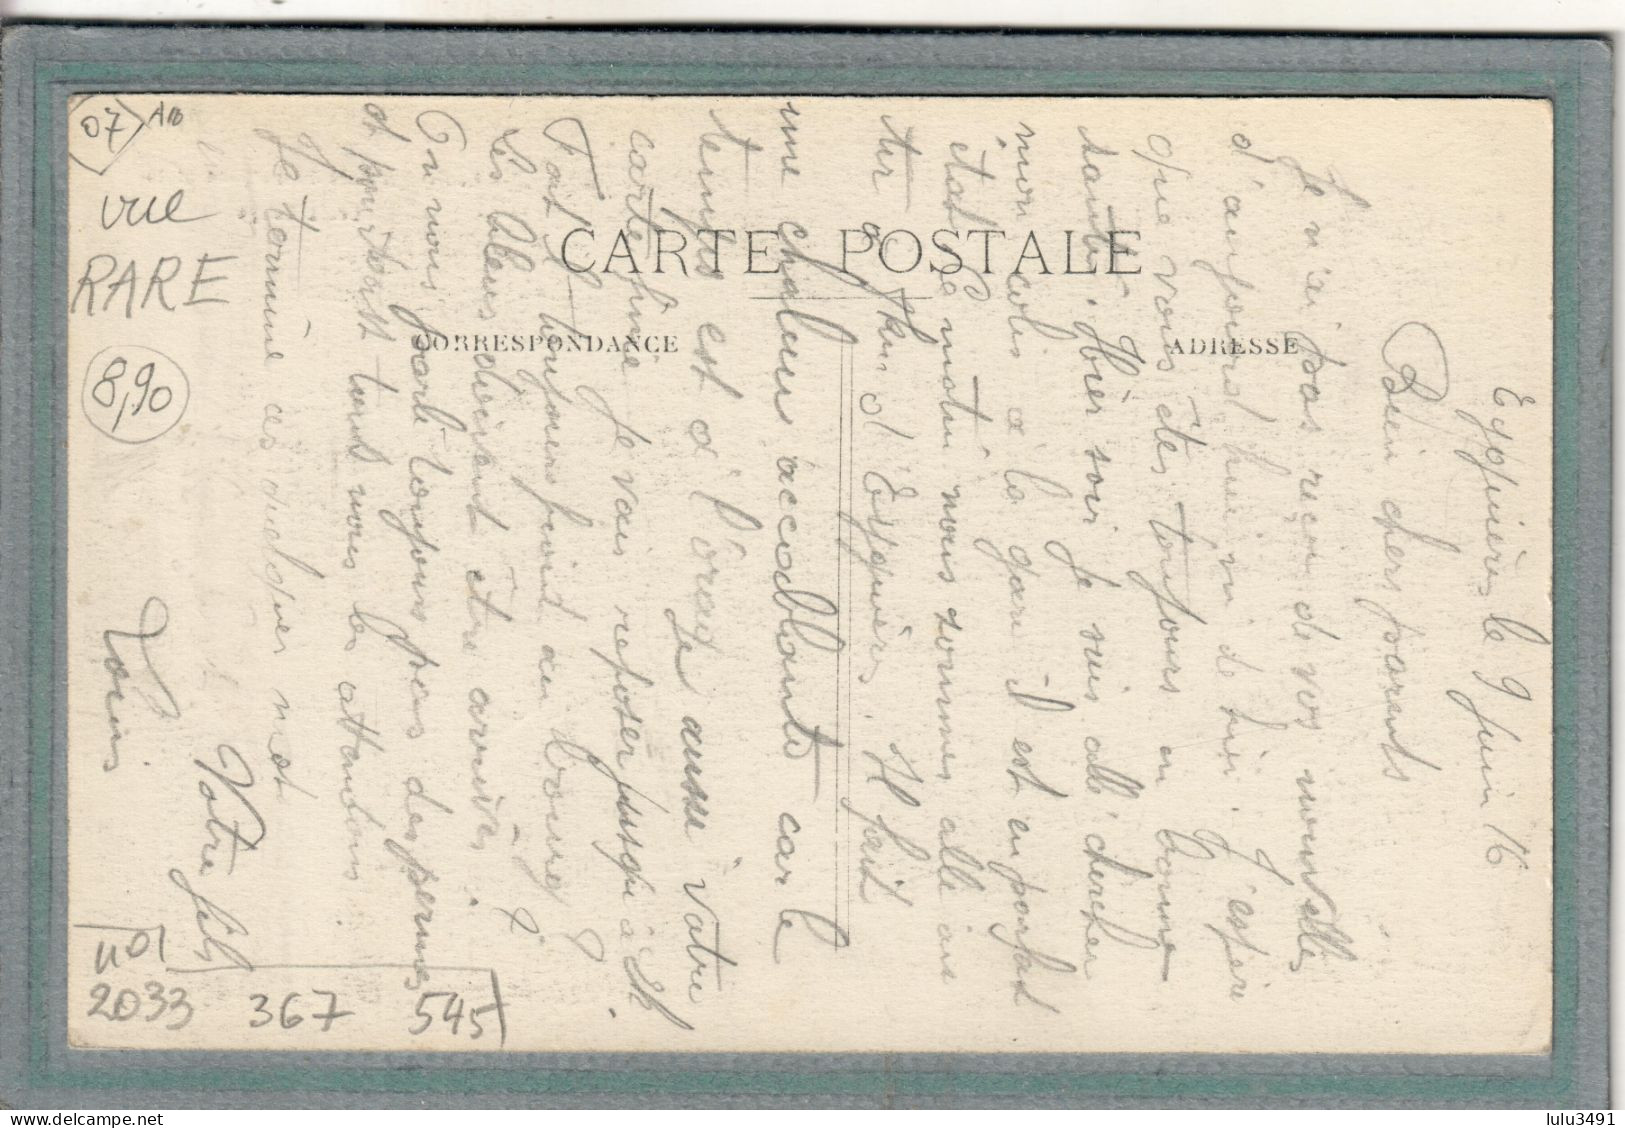 CARTE POSTALE
CORRESPONDANCE
ADRESSE
Eyguières le 9 Juin 16
Bien chers parents
Je n'ai pas reçu de vos nouvelles
d'aujourd'hui ni de hier. J'espère
que vous êtes toujours en bonne
santé. Hier soir je suis allé chercher
mon colis à la gare il est en parfait
état. Ce matin nous sommes allé au
tir à 7 km d'Eyguières. Il fait
une chaleur accablante car le
temps est à l'orage aussi votre
carte finie je vais reposer jusqu'à 2h.
Fait toujours froid au bourg ?
Les bleus doivent être arrivés ?
On nous parle toujours pas des permes
et pourtant tous nous les attendons.
Je termine ces quelques mots
Votre fils
Louis
07
vue
RARE
8,90
2033 367 545
lulu3491
www.delcampe.net